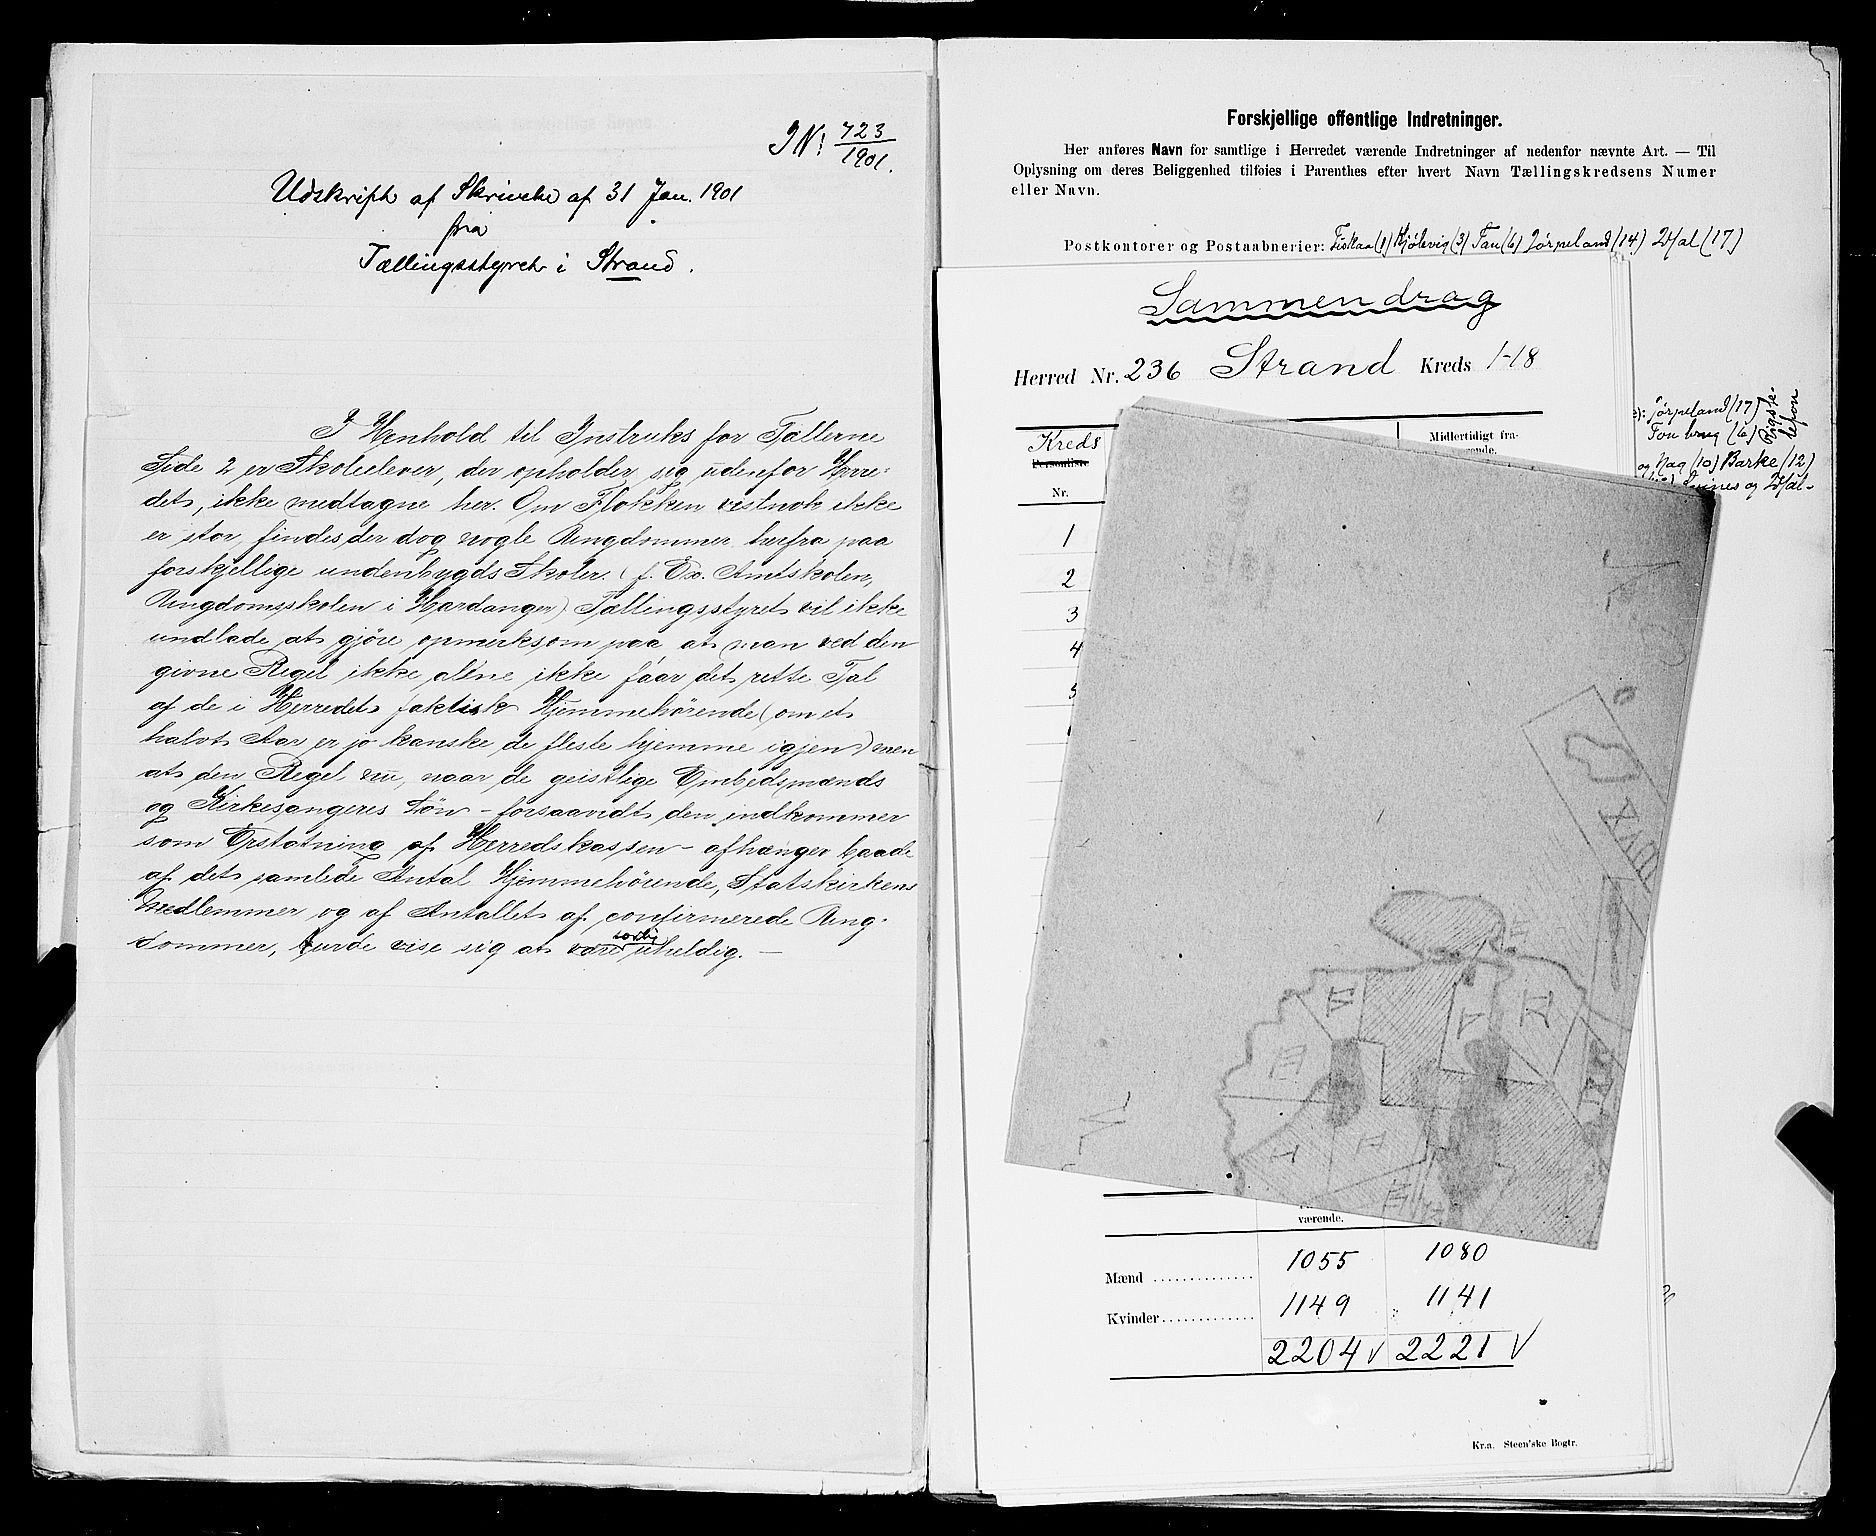 J N! 723/1901.
Udskrift af Skrivelse af 31 Jan. 1901
fra
Tællingsstyret i Strand.
I Henhold til Instruks for Tællerne
Side 2 er Skoleelever, der opholder sig udenfor Herre-
det, ikke medtagne her. Om Flokken vistnok ikke
er stor, findes der dog nogle Ungdommer herfra paa
forskjellige undenbygds Skoler. (f. Ex. Amtskolen,
Ungdomsskolen i Hardanger) Tællingsstyret vil ikke
undlade at gjøre opmerksom paa, at man ved den
givne Regel ikke alene ikke faar det rette Tal
af de i Herredet faktisk Hjemmehørende (om et
halvt Aar er jo kanske de fleste hjemme igjen) men
at den Regel nu, naar de geistlige Embedsmænds
og Kirkesangeres Løn - forsaavidt den indkommer
som Erstatning af Herredskassen - afhænger baade
af det samlede Antal Hjemmehørende, Statskirkens
Medlemmer og af Antallet af confirmerede Ung-
dommer, turde vise sig at være uheldig. —
Forskjellige offentlige Indretninger.
Her anføres Navn for samtlige i Herredet værende Indretninger af nedenfor nævnte Art. — Til
Oplysning om deres Beliggenhed tilføies i Parenthes efter hvert Navn Tællingskredsens Numer
eller Navn.
Postkontorer og Postaabnerier: Fiskaa (1) Kjølevig (3) Tau (6) Jørpeland (14) Idsal (17)
Sammendrag
Herred Nr. 236 Strand Kreds 1-18
Kreds
Personliste
Nr.
Midlertidigt fra-
rende.
1
2
3
4
5
Jørpeland (17)
Tou brug (6)
Rigste-
lefon
og Nag (10) Barke (12)
og Idsal-
XVIII
IV
V
III
I
II
værende.
Mænd 1055 1080
Kvinder 1149 1141
2204 ✓ 2221 ✓
Kr.a. Steen'ske Bogtr.